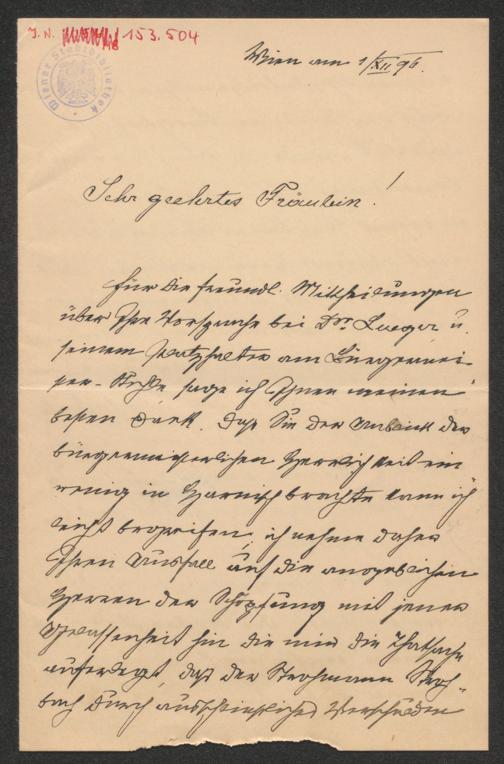 J. N. 153.504
Wiener Stadtbibliothek
Wien am 1/XII 96.
Sehr geehrtes Fräulein!
Für die freundl. Mittheilungen
über Ihre Vorsprache bei Dr. Lueger u.
seinem Platzhalter am Bürgermei-
ster-Stuhle sage ich Ihnen meinen
besten Dank. Daß Sie der Anblick der
bürgermeisterlichen Herrlichkeit ein
wenig in Harnisch brachte kann ich
leicht begreifen, ich nehme daher
Ihren Ausfall auf die angeblichen
Herren der Schöpfung mit jener
Gelassenheit hin die mir die Thatsache
auferlegt, daß der Strohmann Stroh-
bach durch ausschließliches Verschulden